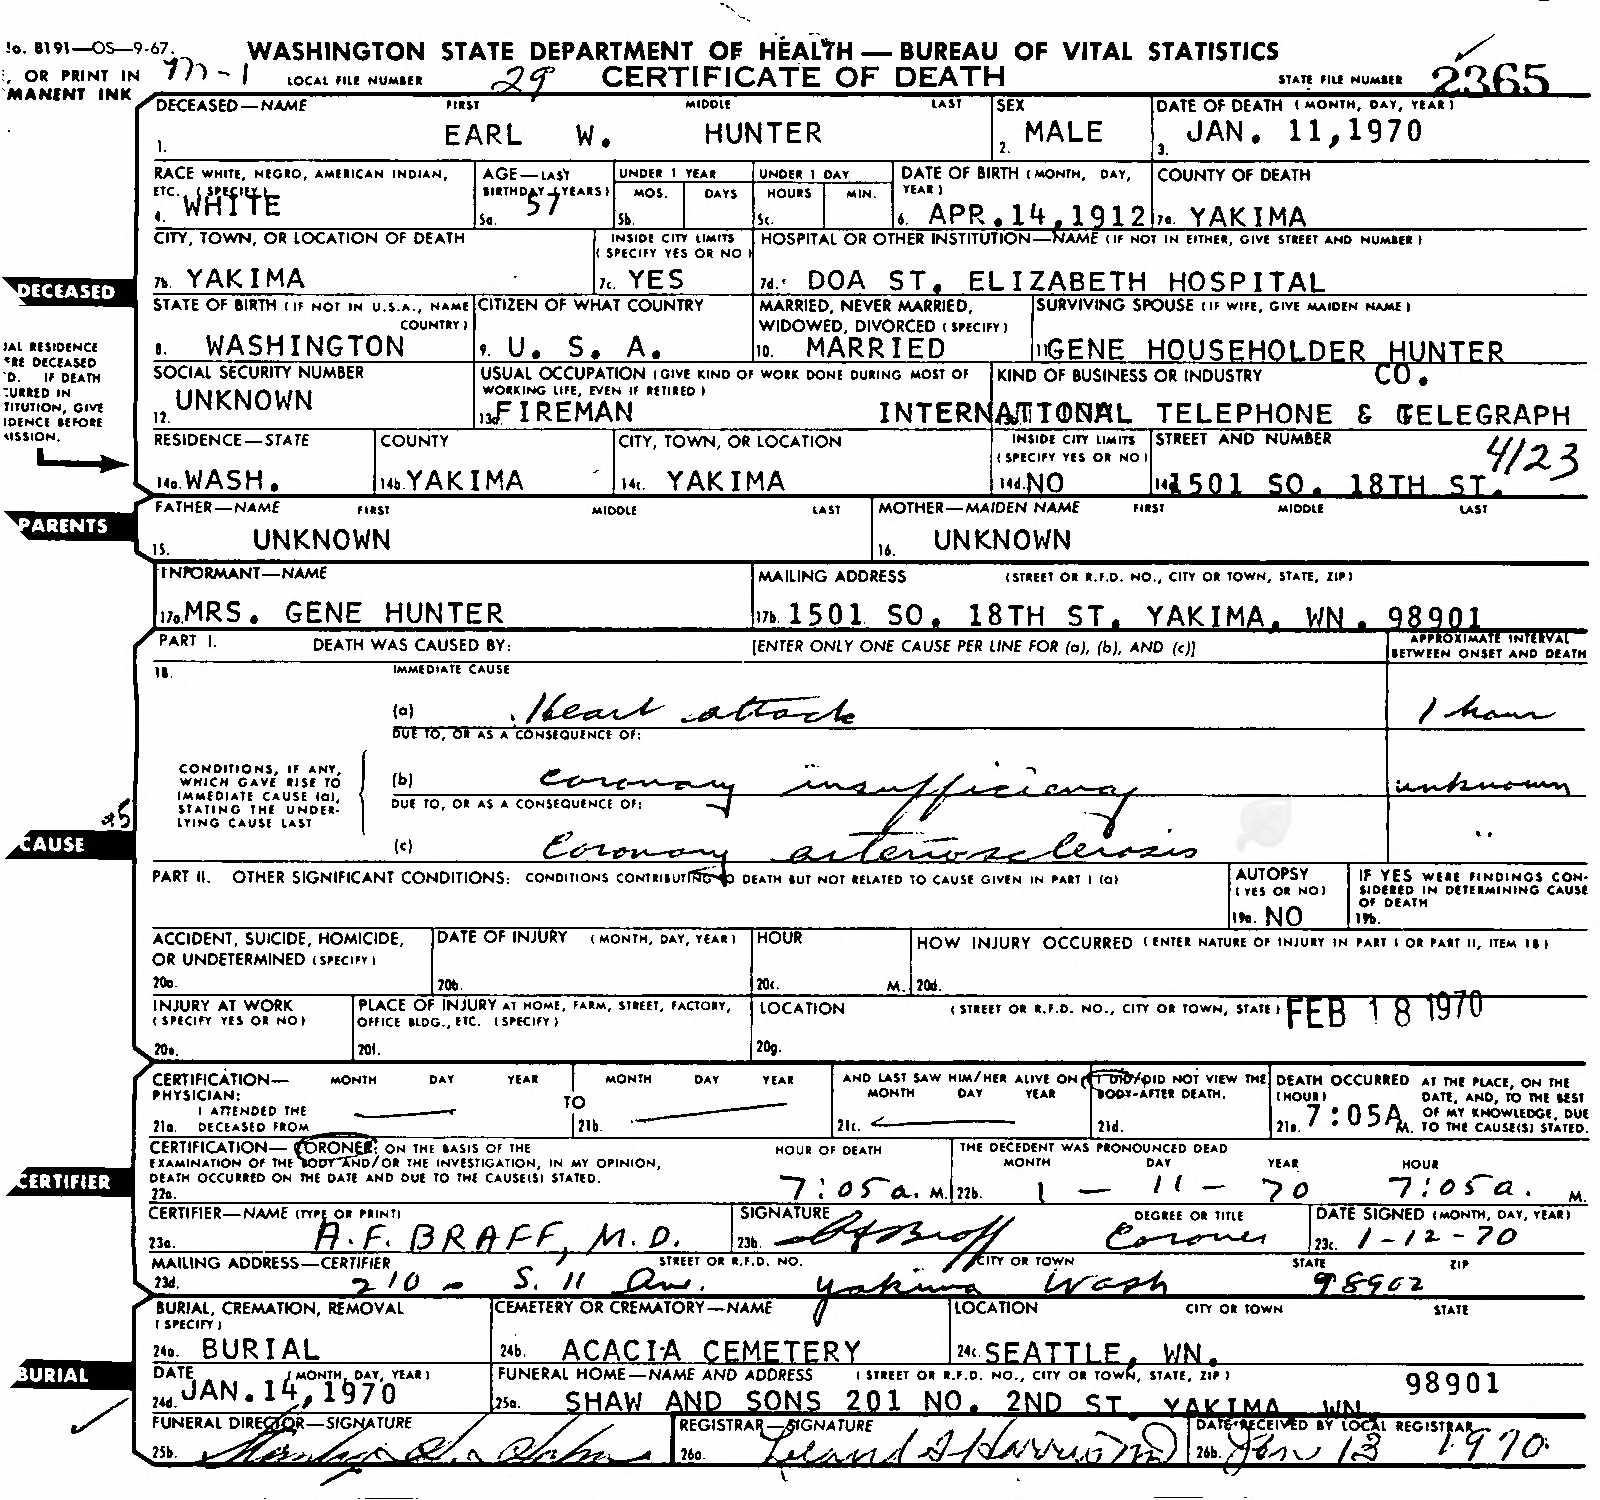 !o. 8191—OS—9-67.
WASHINGTON STATE DEPARTMENT OF HEALTH — BUREAU OF VITAL STATISTICS
, OR PRINT IN
MANENT INK
m-1 LOCAL FILE NUMBER 29 CERTIFICATE OF DEATH STATE FILE NUMBER 2365
DECEASED—NAME FIRST MIDDLE LAST SEX DATE OF DEATH (MONTH, DAY, YEAR)
1. EARL W. HUNTER 2. MALE 3. JAN. 11,1970
RACE WHITE, NEGRO, AMERICAN INDIAN, ETC. (SPECIFY) AGE—LAST BIRTHDAY (YEARS) UNDER 1 YEAR UNDER 1 DAY DATE OF BIRTH (MONTH, DAY, YEAR) COUNTY OF DEATH
MOS. DAYS HOURS MIN.
4. WHITE 5a. 57 5b. 5c. 6. APR.14,1912 7a. YAKIMA
CITY, TOWN, OR LOCATION OF DEATH INSIDE CITY LIMITS (SPECIFY YES OR NO) HOSPITAL OR OTHER INSTITUTION—NAME (IF NOT IN EITHER, GIVE STREET AND NUMBER)
7b. YAKIMA 7c. YES 7d. DOA ST. ELIZABETH HOSPITAL
DECEASED
STATE OF BIRTH (IF NOT IN U.S.A., NAME COUNTRY) CITIZEN OF WHAT COUNTRY MARRIED, NEVER MARRIED, WIDOWED, DIVORCED (SPECIFY) SURVIVING SPOUSE (IF WIFE, GIVE MAIDEN NAME)
8. WASHINGTON 9. U. S. A. 10. MARRIED 11. GENE HOUSEHOLDER HUNTER
SOCIAL SECURITY NUMBER USUAL OCCUPATION (GIVE KIND OF WORK DONE DURING MOST OF WORKING LIFE, EVEN IF RETIRED) KIND OF BUSINESS OR INDUSTRY CO.
12. UNKNOWN 13a. FIREMAN INTERNATIONAL TELEPHONE & TELEGRAPH
IAL RESIDENCE
RE DECEASED
D. IF DEATH
URRED IN
TITUTION, GIVE
IDENCE BEFORE
ISSION.
RESIDENCE—STATE COUNTY CITY, TOWN, OR LOCATION INSIDE CITY LIMITS (SPECIFY YES OR NO) STREET AND NUMBER 4123
14a. WASH. 14b. YAKIMA 14c. YAKIMA 14d. NO 14e. 1501 SO. 18TH ST.
PARENTS
FATHER—NAME FIRST MIDDLE LAST MOTHER—MAIDEN NAME FIRST MIDDLE LAST
15. UNKNOWN 16. UNKNOWN
INFORMANT—NAME MAILING ADDRESS (STREET OR R.F.D. NO., CITY OR TOWN, STATE, ZIP)
17a. MRS. GENE HUNTER 17b. 1501 SO. 18TH ST. YAKIMA, WN. 98901
PART I. DEATH WAS CAUSED BY: [ENTER ONLY ONE CAUSE PER LINE FOR (a), (b), AND (c)] APPROXIMATE INTERVAL BETWEEN ONSET AND DEATH
18. IMMEDIATE CAUSE
(a) Heart attack 1 hour
DUE TO, OR AS A CONSEQUENCE OF:
CONDITIONS, IF ANY, WHICH GAVE RISE TO IMMEDIATE CAUSE (a), STATING THE UNDERLYING CAUSE LAST
(b) coronary insufficiency unknown
DUE TO, OR AS A CONSEQUENCE OF:
CAUSE
(c) Coronary arteriosclerosis "
PART II. OTHER SIGNIFICANT CONDITIONS: CONDITIONS CONTRIBUTING TO DEATH BUT NOT RELATED TO CAUSE GIVEN IN PART I (a) AUTOPSY (YES OR NO) IF YES WERE FINDINGS CONSIDERED IN DETERMINING CAUSE OF DEATH
19a. NO 19b.
ACCIDENT, SUICIDE, HOMICIDE, OR UNDETERMINED (SPECIFY) DATE OF INJURY (MONTH, DAY, YEAR) HOUR HOW INJURY OCCURRED (ENTER NATURE OF INJURY IN PART I OR PART II, ITEM 18)
20a. 20b. 20c. M. 20d.
INJURY AT WORK (SPECIFY YES OR NO) PLACE OF INJURY AT HOME, FARM, STREET, FACTORY, OFFICE BLDG., ETC. (SPECIFY) LOCATION (STREET OR R.F.D. NO., CITY OR TOWN, STATE) FEB 18 1970
20e. 20f. 20g.
CERTIFICATION—PHYSICIAN: MONTH DAY YEAR MONTH DAY YEAR AND LAST SAW HIM/HER ALIVE ON MONTH DAY YEAR I DID/DID NOT VIEW THE BODY AFTER DEATH. DEATH OCCURRED (HOUR) AT THE PLACE, ON THE DATE, AND, TO THE BEST OF MY KNOWLEDGE, DUE TO THE CAUSE(S) STATED.
21a. I ATTENDED THE DECEASED FROM TO 21b. 21c. 21d. 21e. 7:05A M.
CERTIFICATION—CORONER: ON THE BASIS OF THE EXAMINATION OF THE BODY AND/OR THE INVESTIGATION, IN MY OPINION, DEATH OCCURRED ON THE DATE AND DUE TO THE CAUSE(S) STATED. HOUR OF DEATH THE DECEDENT WAS PRONOUNCED DEAD MONTH DAY YEAR HOUR
CERTIFIER
22a. 7:05a. M. 22b. 1 — 11 — 70 7:05a. M.
CERTIFIER—NAME (TYPE OR PRINT) SIGNATURE DEGREE OR TITLE DATE SIGNED (MONTH, DAY, YEAR)
23a. A.F. BRAFF, M.D. 23b. AF Braff Coroner 23c. 1-12-70
MAILING ADDRESS—CERTIFIER STREET OR R.F.D. NO. CITY OR TOWN STATE ZIP
23d. 210 - S. 11 Ave. Yakima Wash 98902
BURIAL, CREMATION, REMOVAL (SPECIFY) CEMETERY OR CREMATORY—NAME LOCATION CITY OR TOWN STATE
24a. BURIAL 24b. ACACIA CEMETERY 24c. SEATTLE, WN.
BURIAL
DATE (MONTH, DAY, YEAR) FUNERAL HOME—NAME AND ADDRESS (STREET OR R.F.D. NO., CITY OR TOWN, STATE, ZIP) 98901
24d. JAN.14,1970 25a. SHAW AND SONS 201 NO. 2ND ST. YAKIMA WN
FUNERAL DIRECTOR—SIGNATURE REGISTRAR—SIGNATURE DATE RECEIVED BY LOCAL REGISTRAR
25b. 26a. 26b. Jan 13 1970